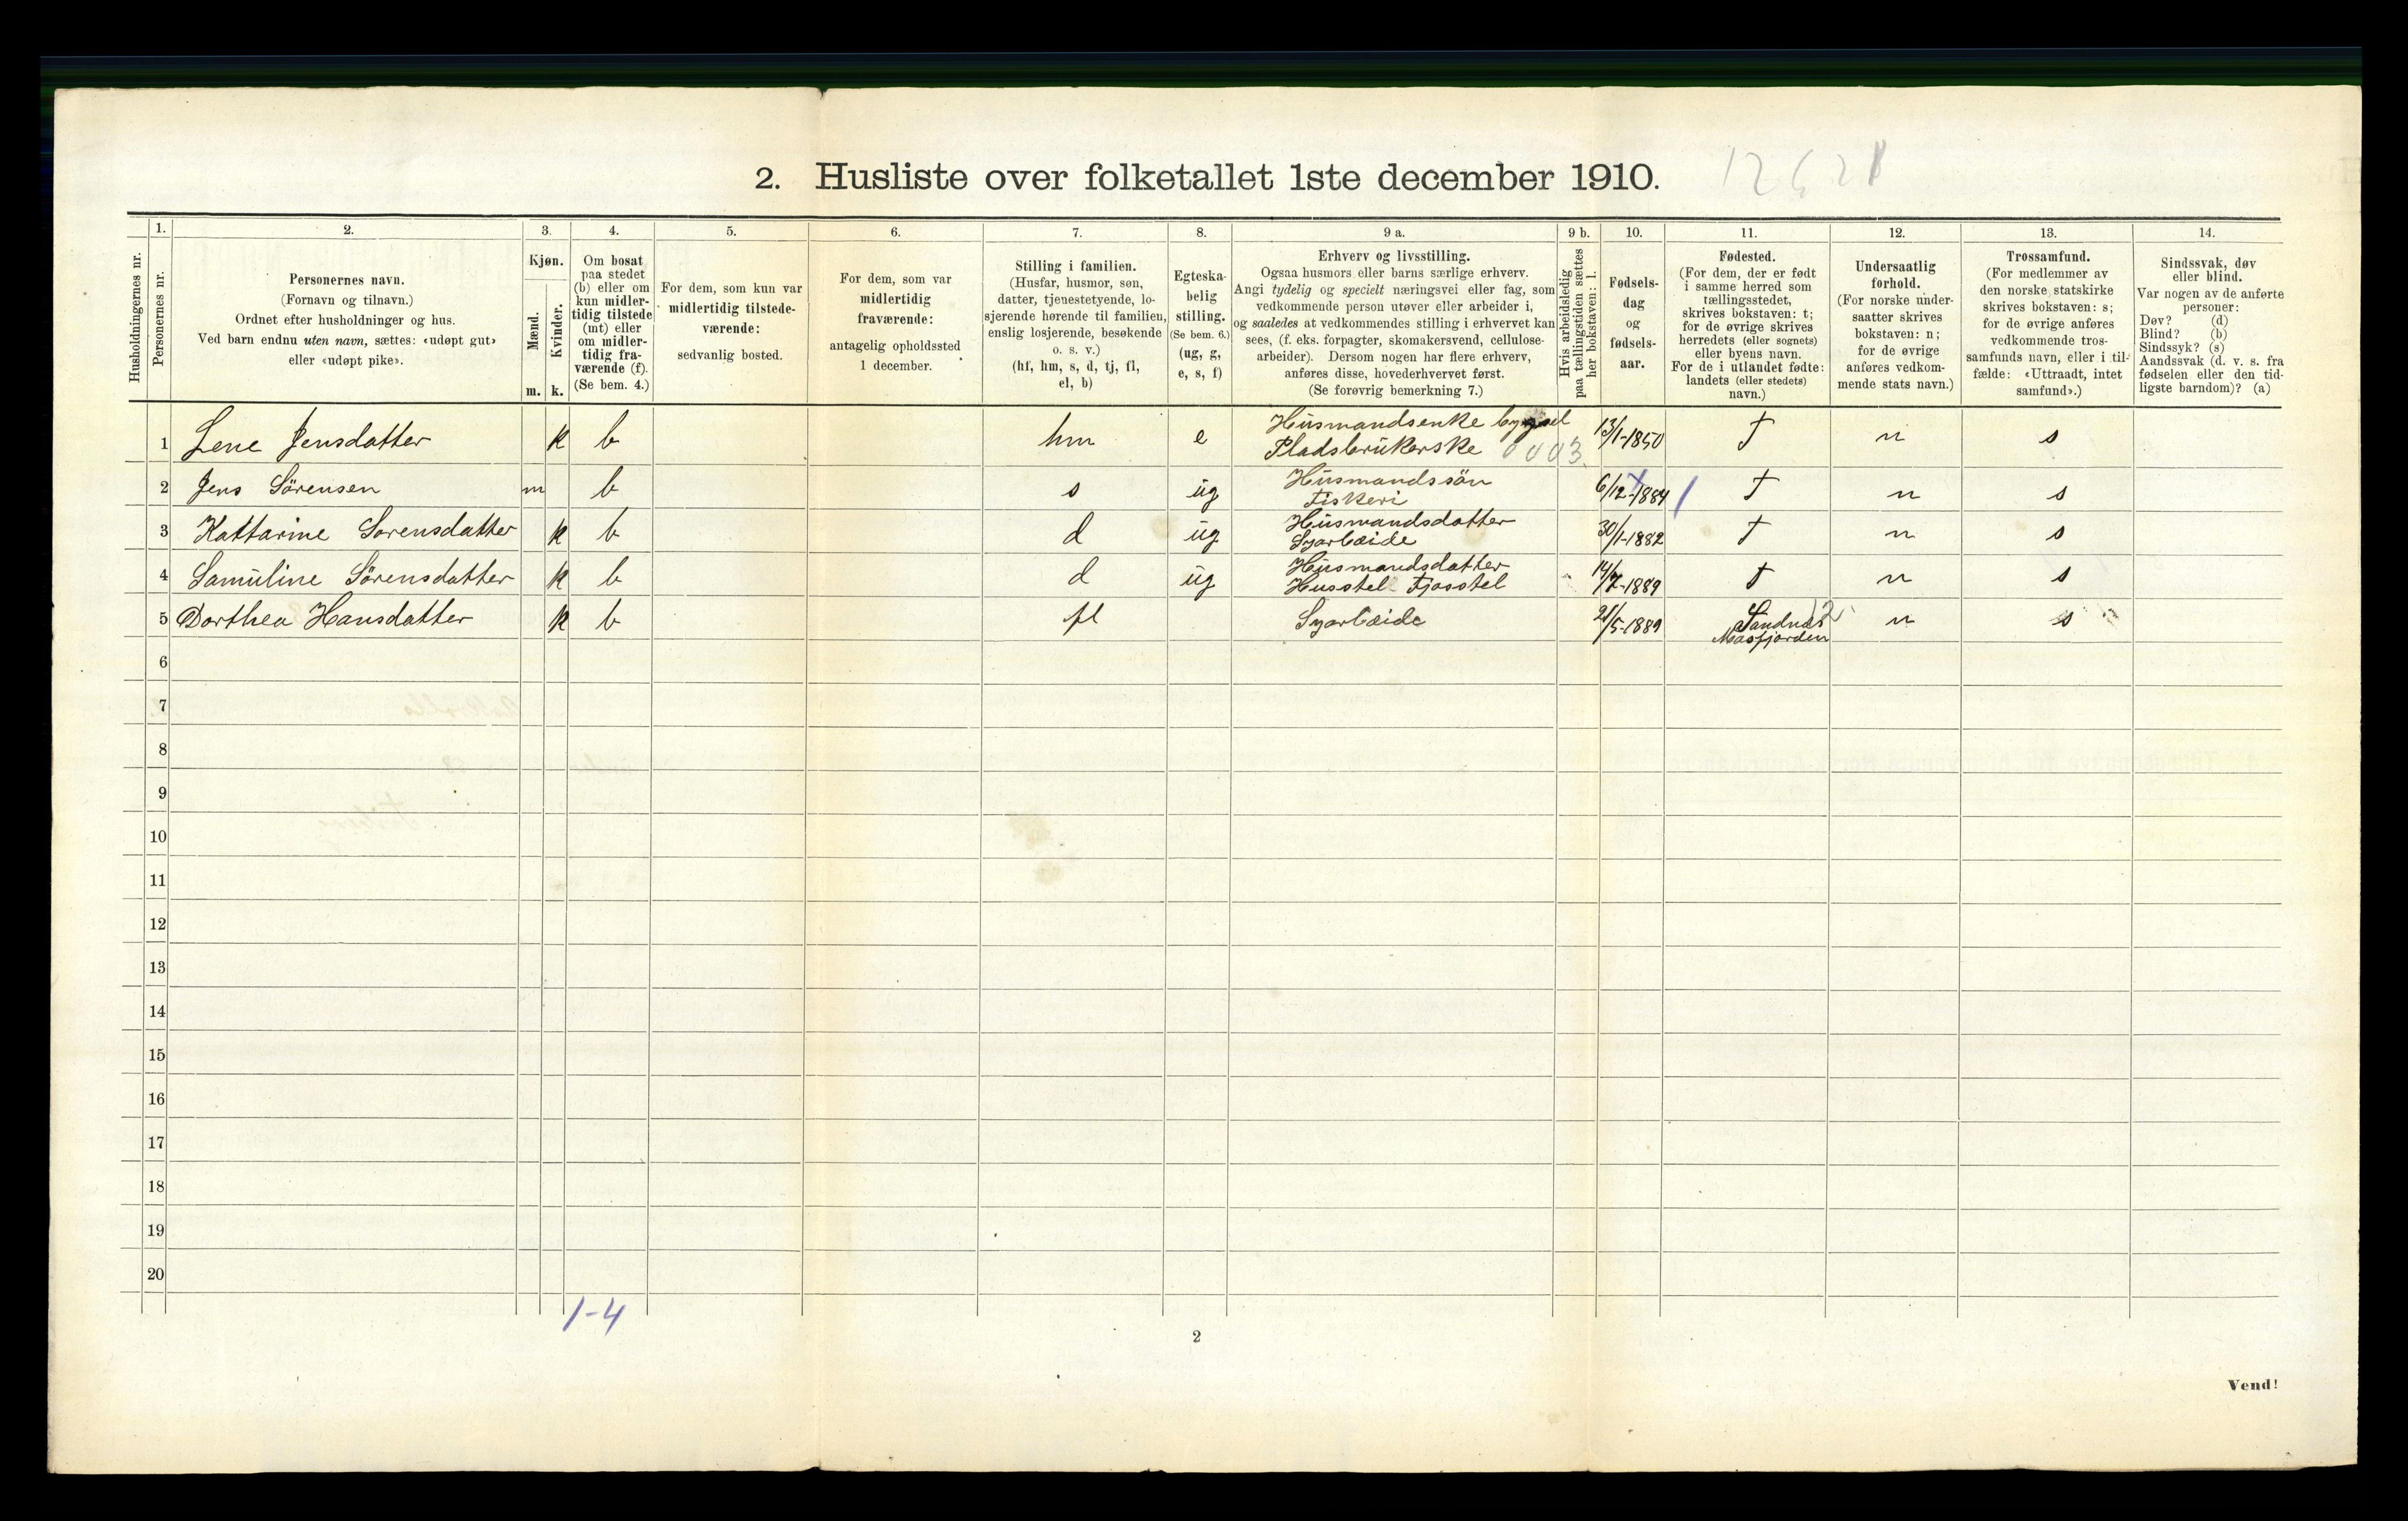 2. Husliste over folketallet 1ste december 1910.
Husholdningernes nr.
1.
Personernes nr.
2.
Personernes navn.
(Fornavn og tilnavn.)
Ordnet efter husholdninger og hus.
Ved barn endnu uten navn, sættes: «udøpt gut»
eller «udøpt pike».
3.
Kjøn.
Mænd.
Kvinder.
m. k.
4.
Om bosat
paa stedet
(b) eller om
kun midler-
tidig tilstede
(mt) eller
om midler-
tidig fra-
værende (f).
(Se bem. 4.)
5.
For dem, som kun var
midlertidig tilstede-
værende:
sedvanlig bosted.
6.
For dem, som var
midlertidig
fraværende:
antagelig opholdssted
1 december.
7.
Stilling i familien.
(Husfar, husmor, søn,
datter, tjenestetyende, lo-
sjerende hørende til familien,
enslig losjerende, besøkende
o. s. v.)
(hf, hm, s, d, tj, fl,
el, b)
8.
Egteska-
belig
stilling.
(Se bem. 6.)
(ug, g,
e, s, f)
9 a.
Erhverv og livsstilling.
Ogsaa husmors eller barns særlige erhverv.
Angi tydelig og specielt næringsvei eller fag, som
vedkommende person utøver eller arbeider i,
og saaledes at vedkommendes stilling i erhvervet kan
sees, (f. eks. forpagter, skomakersvend, cellulose-
arbeider). Dersom nogen har flere erhverv,
anføres disse, hovederhvervet først.
(Se forøvrig bemerkning 7.)
9 b.
Hvis arbeidsledig
paa tællingstiden sættes
her bokstaven: l.
10.
Fødsels-
dag
og
fødsels-
aar.
11.
Fødested.
(For dem, der er født
i samme herred som
tællingsstedet,
skrives bokstaven: t;
for de øvrige skrives
herredets (eller sognets)
eller byens navn.
For de i utlandet fødte:
landets (eller stedets)
navn.)
12.
Undersaatlig
forhold.
(For norske under-
saatter skrives
bokstaven: n;
for de øvrige
anføres vedkom-
mende stats navn.)
13.
Trossamfund.
(For medlemmer av
den norske statskirke
skrives bokstaven: s;
for de øvrige anføres
vedkommende tros-
samfunds navn, eller i til-
fælde: «Uttraadt, intet
samfund».)
14.
Sindssvak, døv
eller blind.
Var nogen av de anførte
personer:
Døv? (d)
Blind? (b)
Sindssyk? (s)
Aandssvak (d. v. s. fra
fødselen eller den tid-
ligste barndom)? (a)
1 Lene Jensdatter k b hm e Husmandsenke bygsel
Pladsbrukerske 0003 13/1-1850 T n s
2 Jens Sörensen m b s ug Husmandssön
Fiskeri 6/12-1884 T n s
3 Kattarine Sorensdatter k b d ug Husmandsdatter
Syarbeide 30/1-1882 T n s
4 Samuline Sörensdatter k b d ug Husmandsdatter
Husstel Fjosstel 14/7-1889 T n s
5 Dorthea Hansdatter k b fl Syarbeide 21/5-1889 Sandnes
Masfjorden n s
6
7
8
9
10
11
12
13
14
15
16
17
18
19
20
1-4
2
Vend!